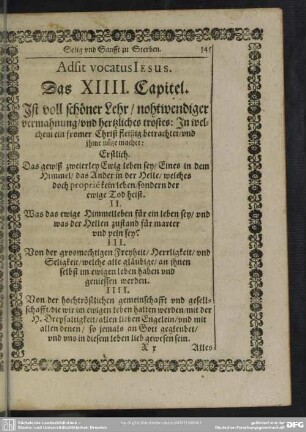 Selig vnd Sanfft zu Sterben. 145
Adsit vocatus IESUS.
Das XIIII. Capitel.
Ist voll schöner Lehr / nohtwendiger
vermahnung / vnd hertzliches trostes: In wel-
chem ein fromer Christ fleißig betrachtet / vnd
ihme nütze machet:
Erstlich.
Das gewiß zweierley Ewig leben sey / Eines in dem
Himmel / das Ander in der Helle / welches
doch propriè kein leben / sondern der
ewige Tod heist.
II.
Was das ewige Himmelleben für ein leben sey / vnd
was der Hellen zustand für marter
vnd pein sey?
III.
Von der grosmechtigen Freyheit / Herrligkeit / vnd
Seligkeit / welche alle gläubigen / an ihnen
selbst im ewigen leben haben vnd
geniessen werden.
IIII.
Von der hochtröstlichen gemeinschafft vnd gesell-
schafft / die wir im ewigen leben halten werden / mit der
H. Dreyfaltigkeit / allen lieben Engelein / vnd mit
allen denen / so jemals an Gott gegleubet /
vnd vns in diesem leben lieb gewesen sein.
Alles